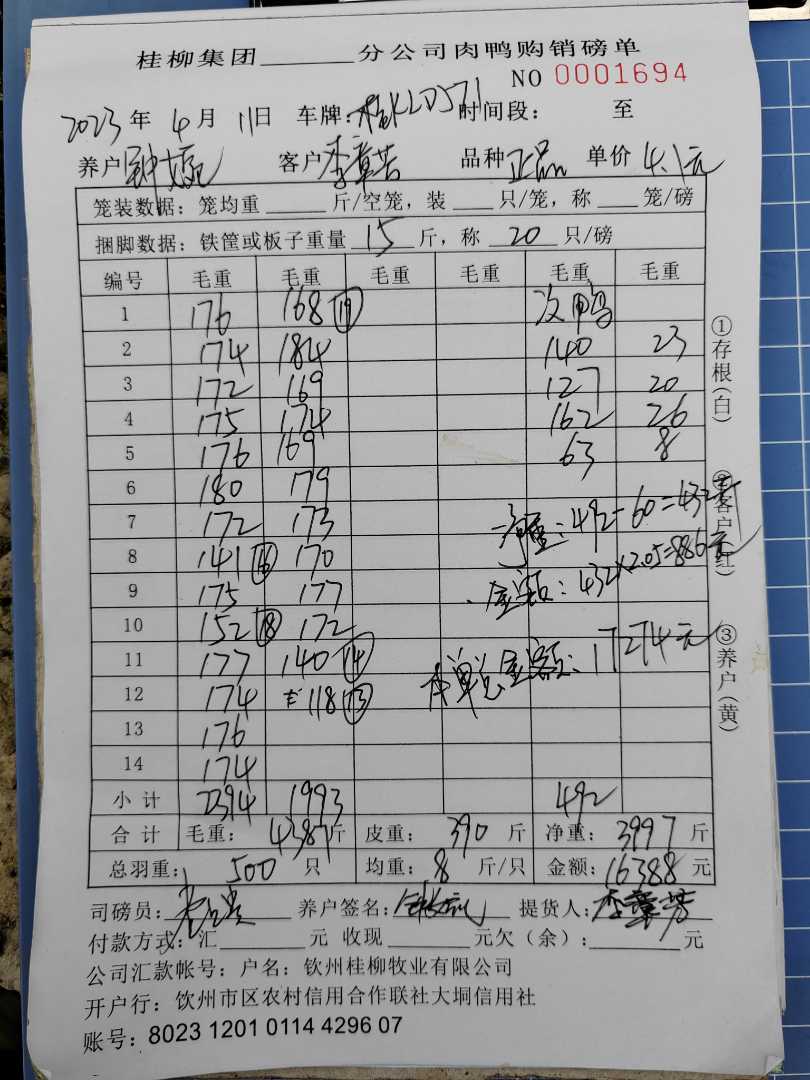 桂柳集团______分公司肉鸭购销磅单
NO 0001694
2023年4月11日 车牌: 时间段: 至
养户 钟 客户 李章芳 品种 正品 单价 4.1元
笼装数据: 笼均重____斤/空笼, 装___只/笼, 称___笼/磅
捆脚数据: 铁筐或板子重量 15 斤, 称 20 只/磅
编号 毛重 毛重 毛重 毛重 毛重 毛重
1 176 168 (19) 次鸭
2 174 184 140 23
3 172 169 127 20
4 175 174 162 26
5 176 169 63 8
6 180 179
7 172 173 净重: 492-60=432斤
8 141 (16) 170
9 175 177 金额: 432×2.05=886元
10 152 (18) 172
11 177 140 (14) 本单总金额: 17274元
12 174 118 (13)
13 176
14 174
小计 2394 1993 492
合计 毛重: 4387斤 皮重: 390 斤 净重: 3997 斤
总羽重: 500 只 均重: 8 斤/只 金额: 16388 元
司磅员: 养户签名: 提货人: 李章芳
付款方式: 汇______元 收现______元欠(余):______元
公司汇款帐号: 户名: 钦州桂柳牧业有限公司
开户行: 钦州市区农村信用合作联社大垌信用社
账号: 8023 1201 0114 4296 07
①存根(白)
②客户(红)
③养户(黄)